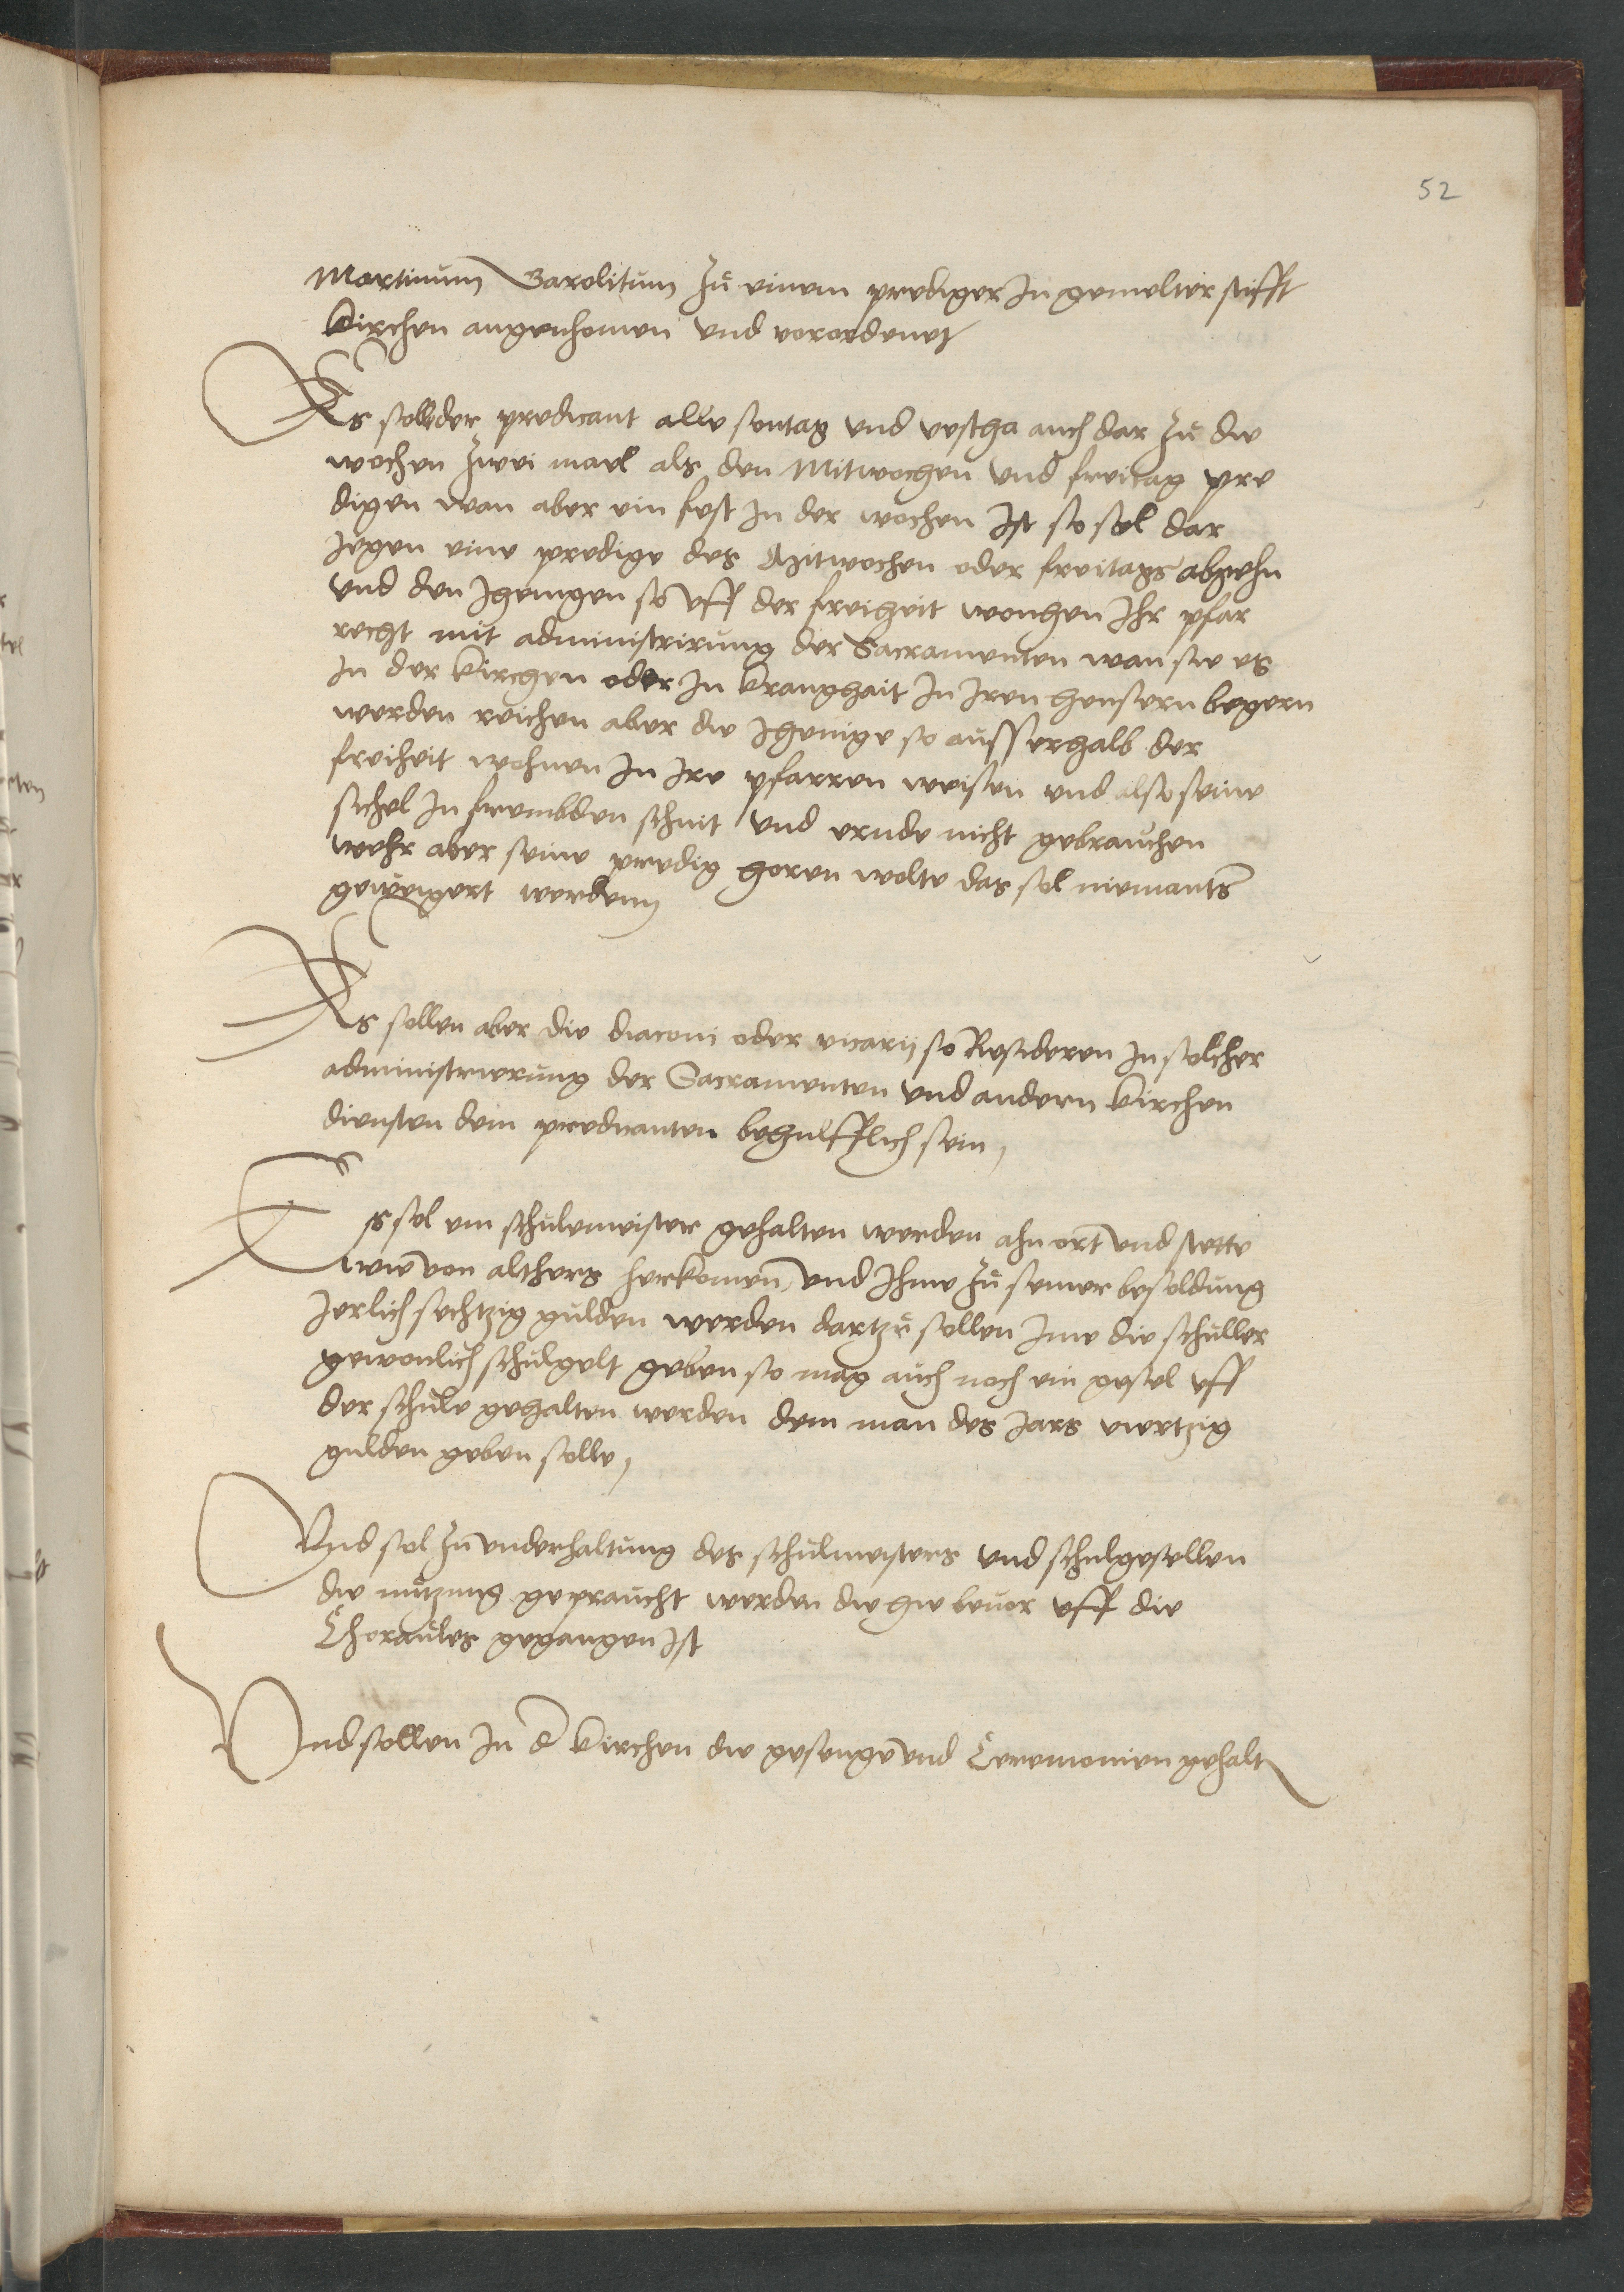 52
Martinum Carolitum zu einem prediger In gemelter stifft
Kirchen angenhomen und verordenet
Es soll der predicant alle sontag und vestha auch dar zu die
wochen zwei mael als den Mitwochen und freitag pre
digen wan aber ein fest In der wochen Ist so sol dar
jegen eine predige des Mitwochen oder freitags abgehn
und den Jhenigen so uff der freiheit wonhen Ihr pfar
recht mit administrirung der Sacramenten wan sie es
In der Kirchen oder In Kranghait In Iren heusern begern
werden reichen aber die Jhenige so ausserhalb der
freiheit wohnen In Ire pfarren weisen und also seine
sichel In frembden schnit und ernde nicht gebrauchen
wehr aber seine predig horen wolte das sol niemants
geweigert werdenn
Es sollen aber die diaconi oder vicarij so Resideren In solcher
administrierung der Sacramenten und andern Kirchen
diensten dem predicanten behulfflich sein,
Es sol ein schulemeister gehalten werden ahn ort und stette
wie von althers herkomen, und Ihme zu seiner besoldung
Jerlich sechtzig gulden werden dartzu sollen Ime die schuller
gewonlich schulgelt geben so mag auch noch ein gesel uff
der schule gehalten werden dem man des Jars viertzig
gulden geben solle,
Und sol zu underhaltung des schulmeisters und schulgesellen
die nutzung gepraucht werden die hie bevor uff die
Choraules gegangen Ist
Und sollen In d Kirchen die gesenge und Ceremonien gehalt